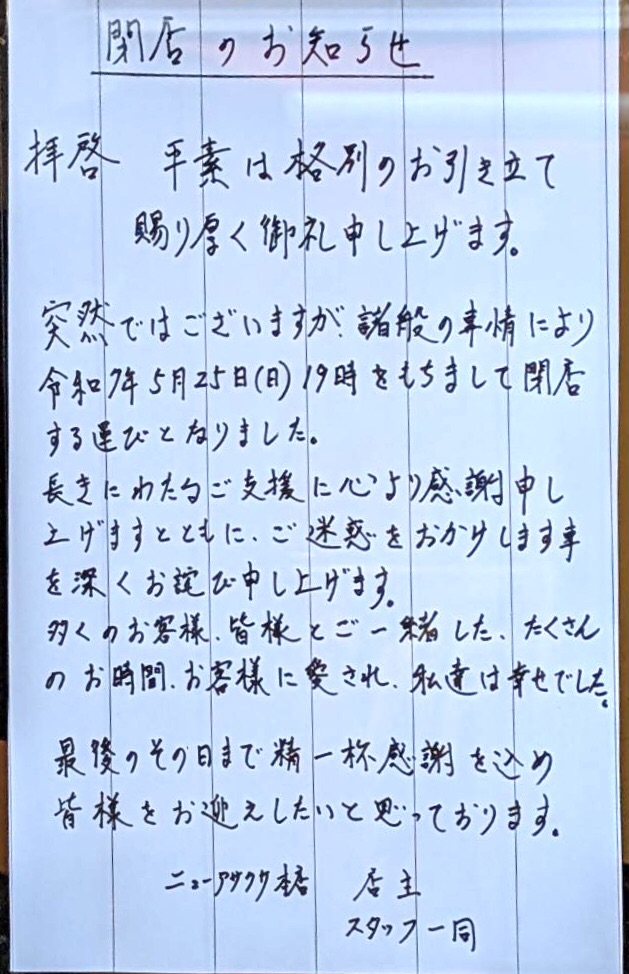 閉店のお知らせ
拝啓 平素は格別のお引き立て
賜り厚く御礼申し上げます。
突然ではございますが、諸般の事情により
令和7年5月25日(日)19時をもちまして閉店
する運びとなりました。
長きにわたるご支援に心より感謝申し
上げますとともに、ご迷惑をおかけします事
を深くお詫び申し上げます。
多くのお客様、皆様とご一緒した、たくさん
のお時間、お客様に愛され、私達は幸せでした。
最後のその日まで精一杯感謝を込め
皆様をお迎えしたいと思っております。
ニューアサクサ本店 店主
スタッフ一同